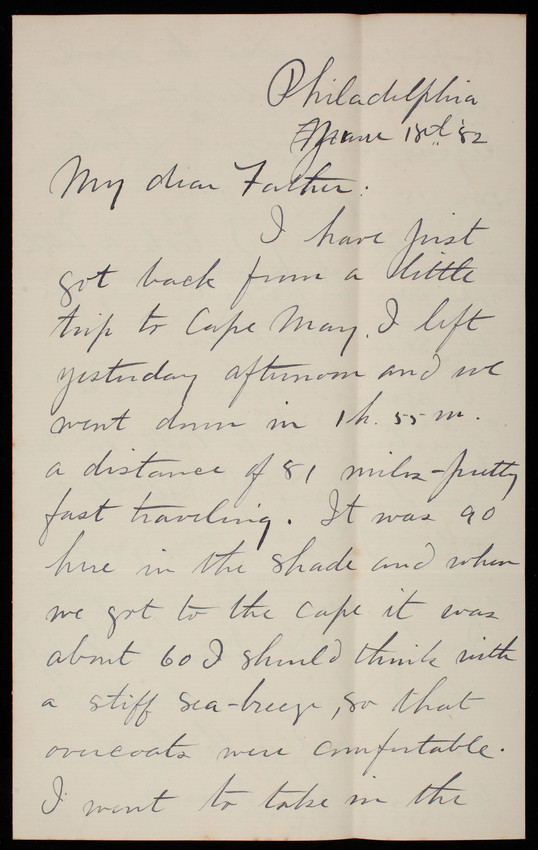 Philadelphia
June 18d '82
My dear Father:
I have just
got back from a little
trip to Cape May. I left
yesterday afternoon and we
went down in 1h. 55m.
a distance of 81 miles - pretty
fast traveling. It was 90
here in the shade and when
we got to the Cape it was
about 60 I should think with
a stiff sea-breeze, so that
overcoats were comfortable.
I went to take in the